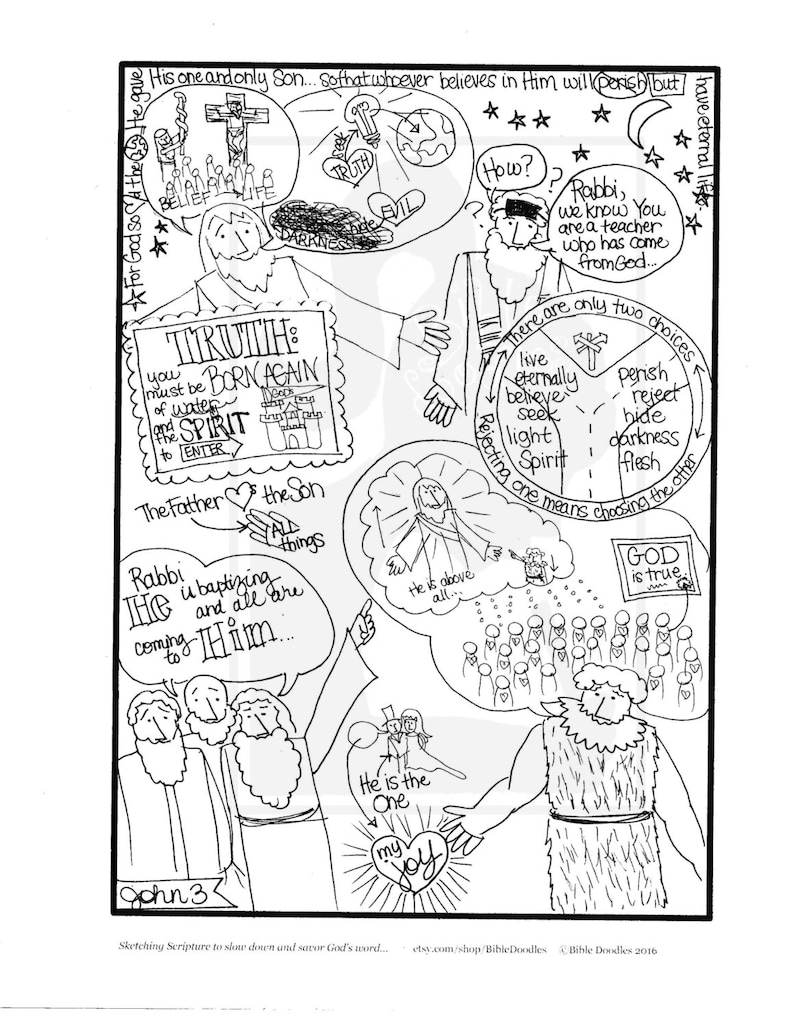 For God so loved the
He gave
His one and only Son... so that whoever believes in Him will perish but
have eternal life.
BELIEF
seek
TRUTH
EVIL
hide
DARKNESS
How?
?
?
Rabbi,
we know You
are a teacher
who has come
from God...
TRUTH:
you
must be BORN AGAIN
of water
and
the SPIRIT
to ENTER
GOD's
There are only two choices
live
eternally
believe
seek
light
Spirit
perish
reject
hide
darkness
flesh
Rejecting one means choosing the other
The Father the Son
ALL
things
He is above
all...
GOD
is true.
Rabbi
He is baptizing
and all are
coming
to Him...
He is the
One
my
joy
John 3
Sketching Scripture to slow down and savor God's word... etsy.com/shop/BibleDoodles ©Bible Doodles 2016